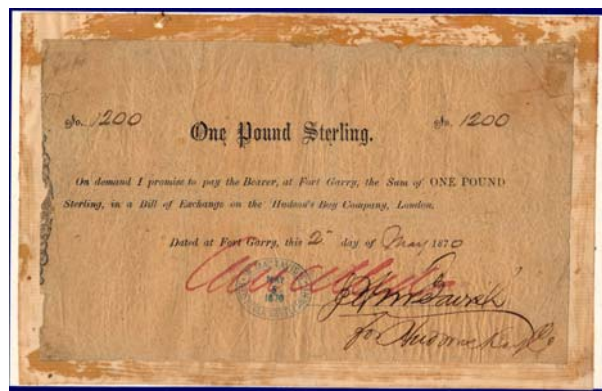 No. 1200 No. 1200
One Pound Sterling.
On demand I promise to pay the Bearer, at Fort Garry, the Sum of ONE POUND
Sterling, in a Bill of Exchange on the Hudson's Bay Company, London.
Dated at Fort Garry, this 2 day of May 1870
Cancelled
MAY
1870
for Hudson's Bay Co